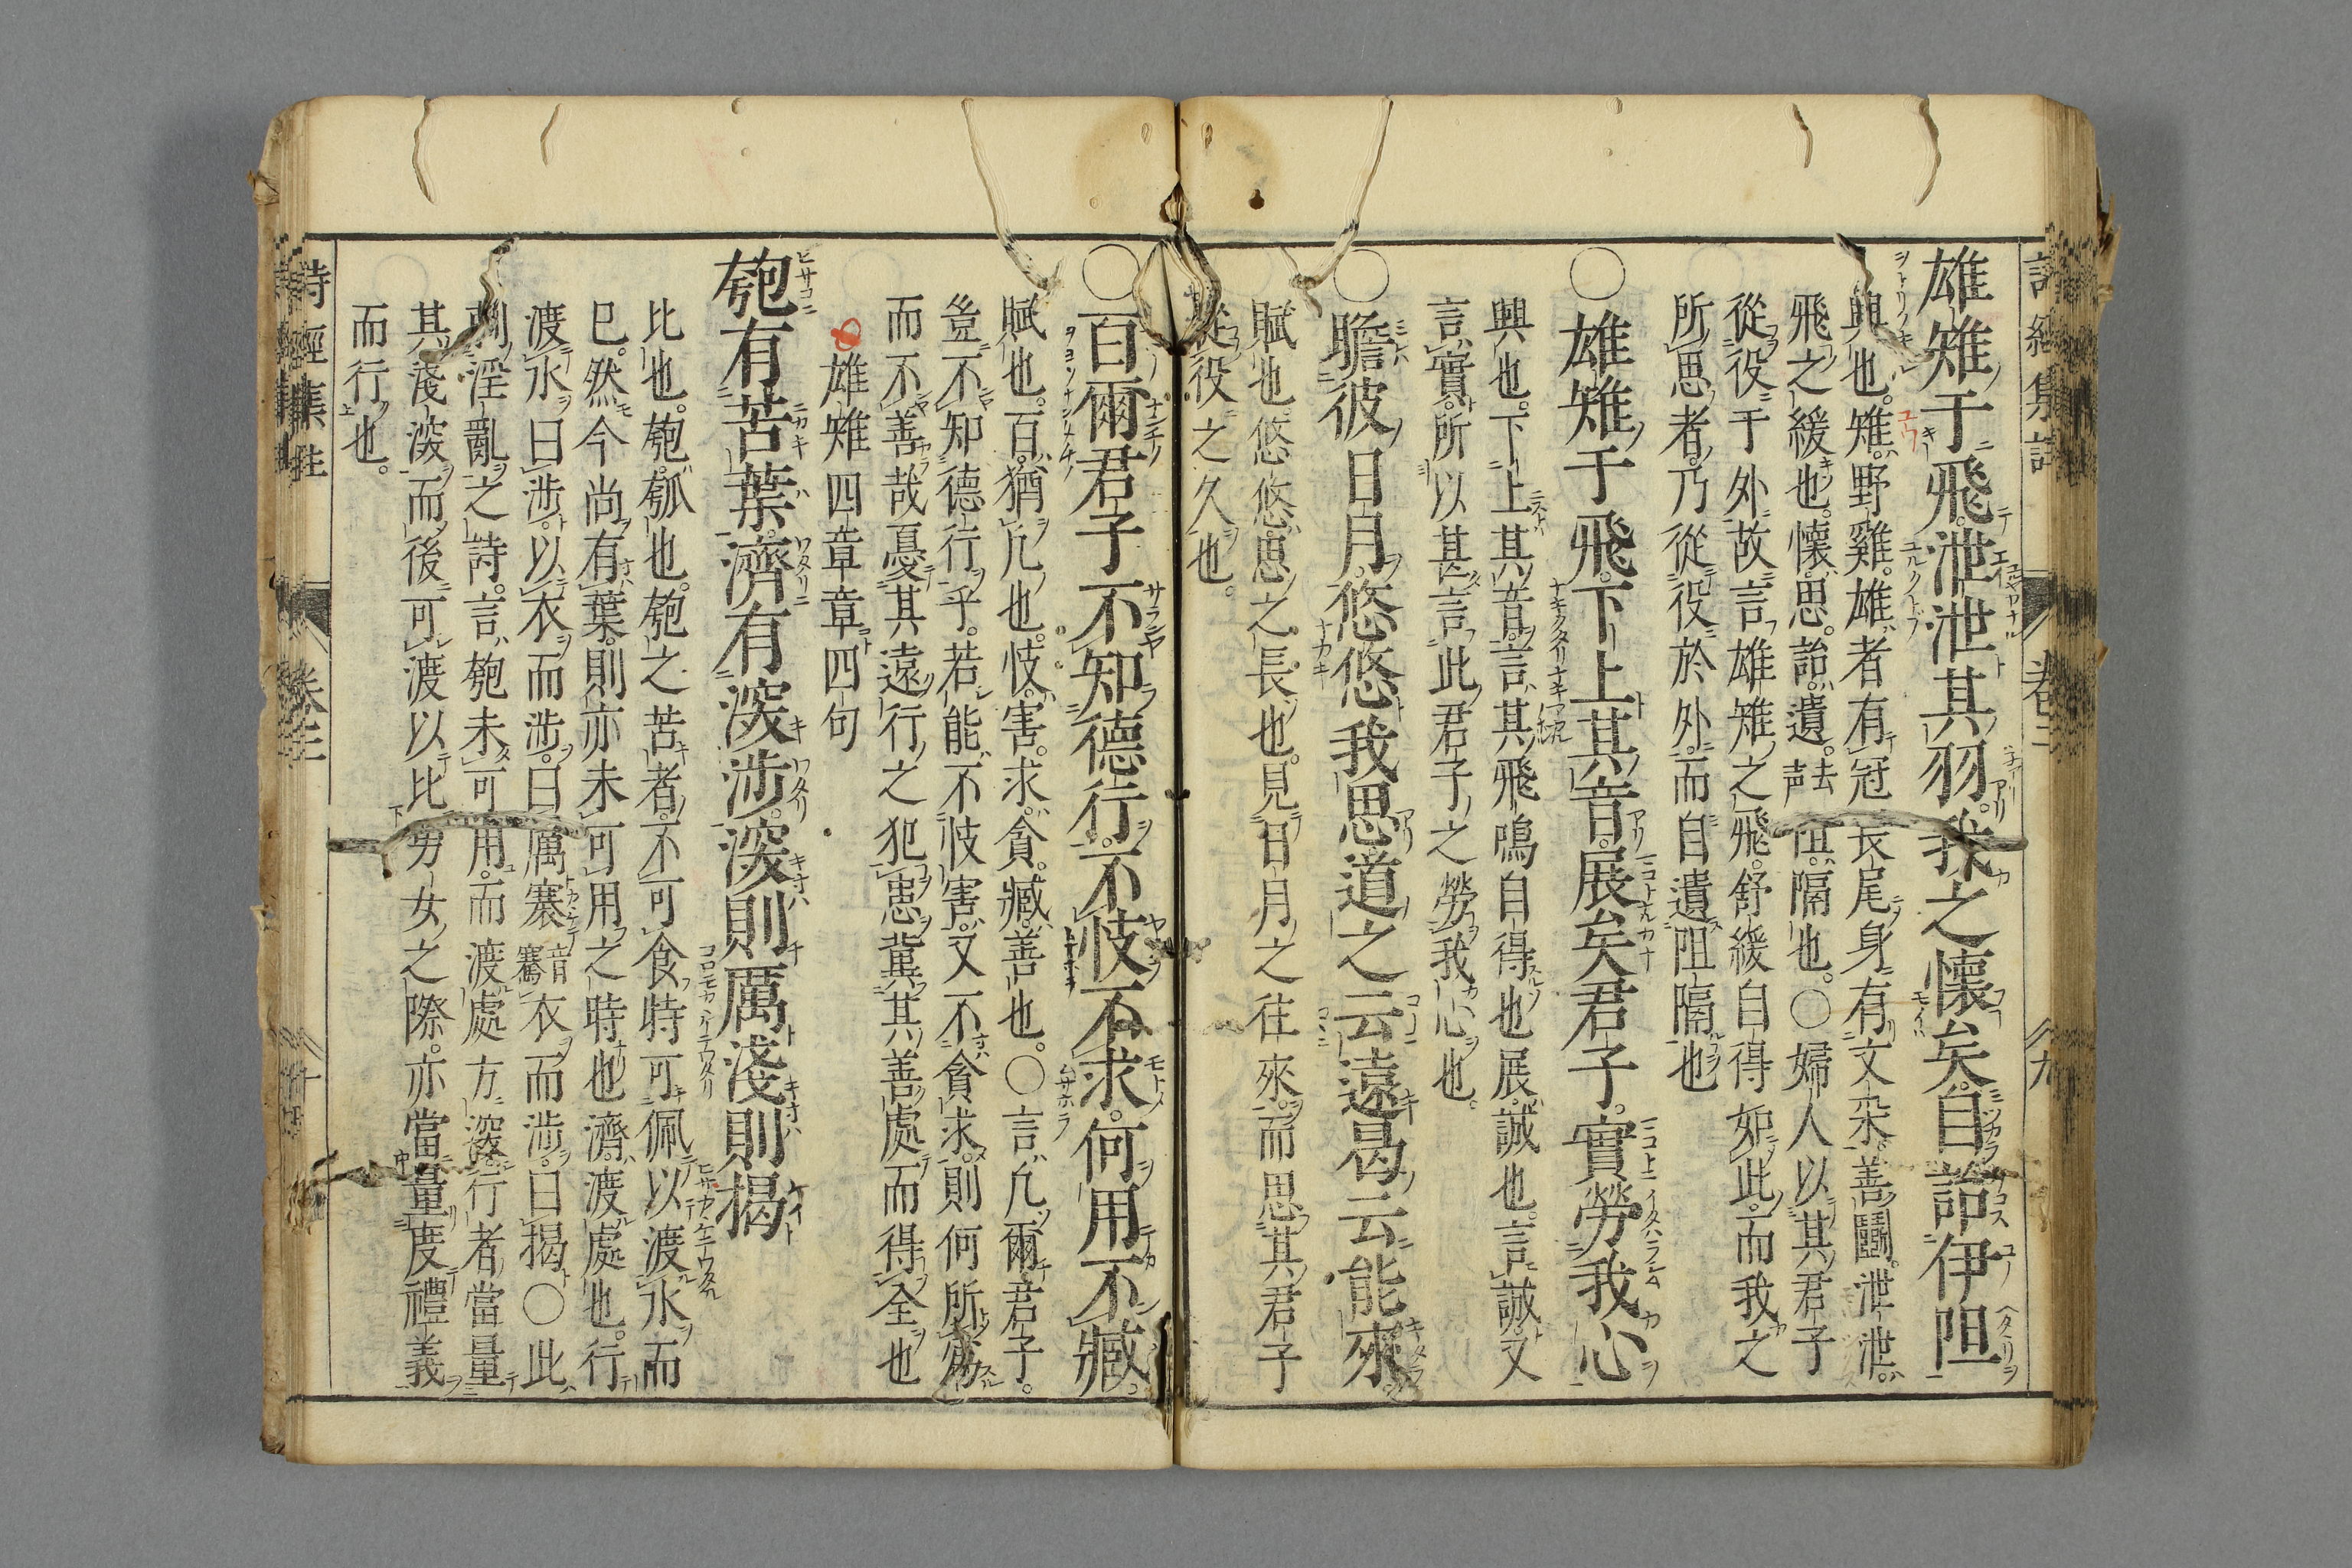 雄雉于飛泄泄其羽我之懷矣自詒伊阻
興也雉野雞雄者有冠長尾身有文采善鬭泄泄
飛之緩也懷思詒遺去声阻隔也○婦人以其君子
從役于外故言雄雉之飛舒緩自得如此而我之
所思者乃從役於外而自遺阻隔也
○雄雉于飛下上其音展矣君子實勞我心
興也下上其音言其飛鳴自得也展誠也言誠又
言實所以甚言此君子之勞我心也
○瞻彼日月悠悠我思道之云遠曷云能來
賦也悠悠思之長也見日月之往來而思其君子
從役之久也
○百爾君子不知德行不忮不求何用不臧
賦也百猶凡也忮害求貪臧善也○言凡爾君子
豈不知德行乎若能不忮害又不貪求則何所為
而不善哉憂其遠行之犯患冀其善處而得全也
雄雉四章章四句
匏有苦葉濟有深涉深則厲淺則揭
比也匏瓠也匏之苦者不可食特可佩以渡水而
已然今尚有葉則亦未可用之時也濟渡處也行
渡水曰涉以衣而涉曰厲褰音騫衣而涉曰揭○此
刺淫亂之詩言匏未可用而渡處方深行者當量
其淺深而後可渡以比男女之際亦當量度禮義
而行也
詩經集註
卷二